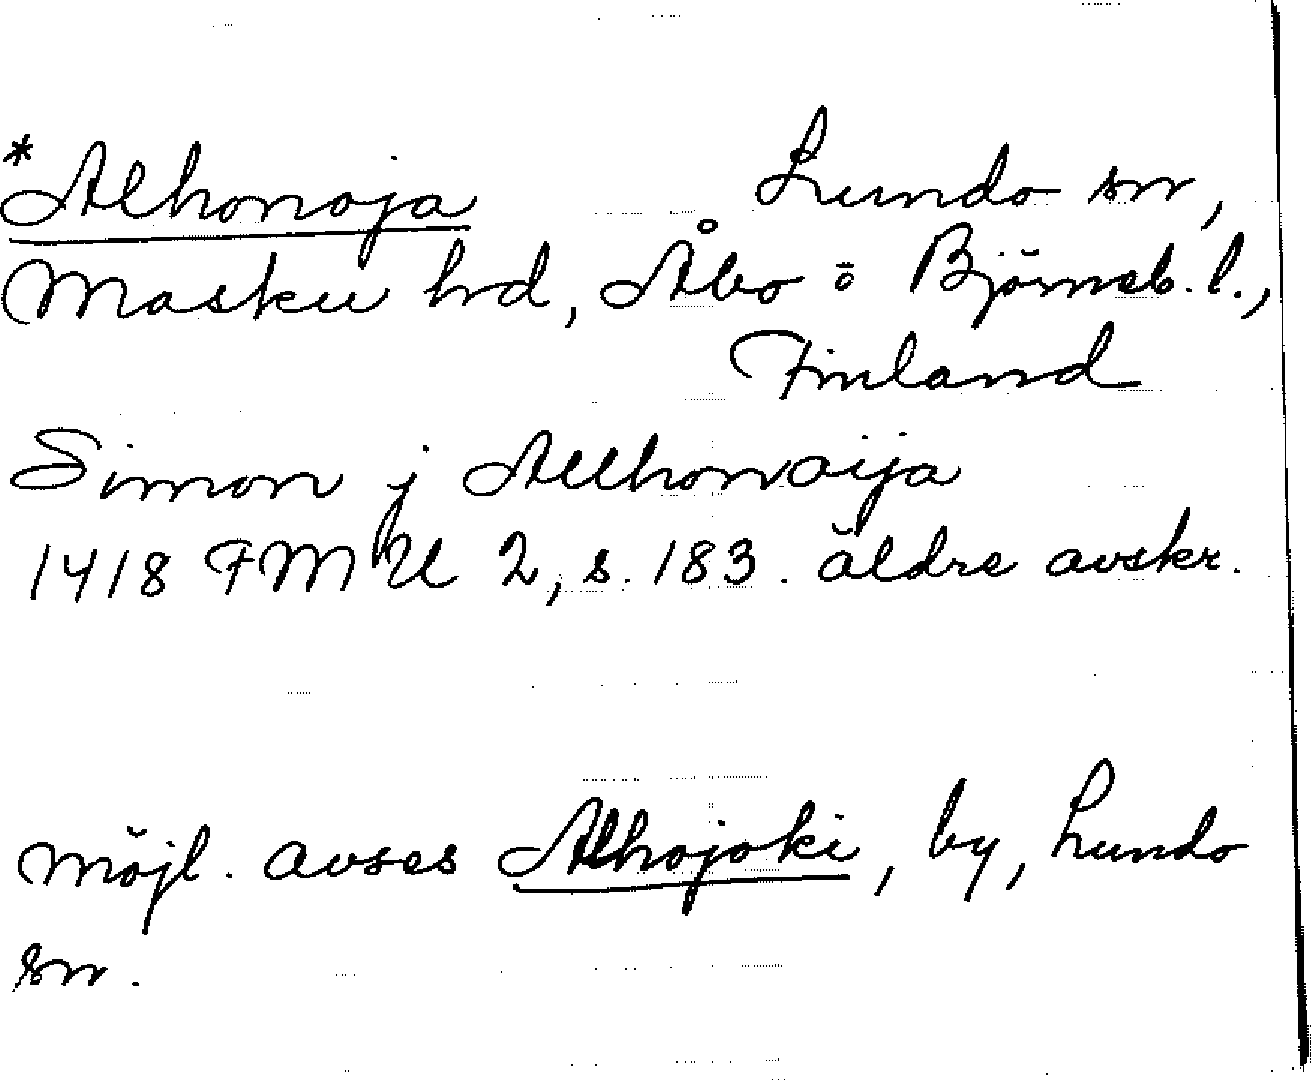 *Alhonoja Lundo sn,
Masku hd, Åbo o Björneb. l.,
Finland
Simon j Allhonoija
1418 FMU 2, s. 183. äldre avskr.
möjl. avses Alhojoki, by, Lundo
sn.